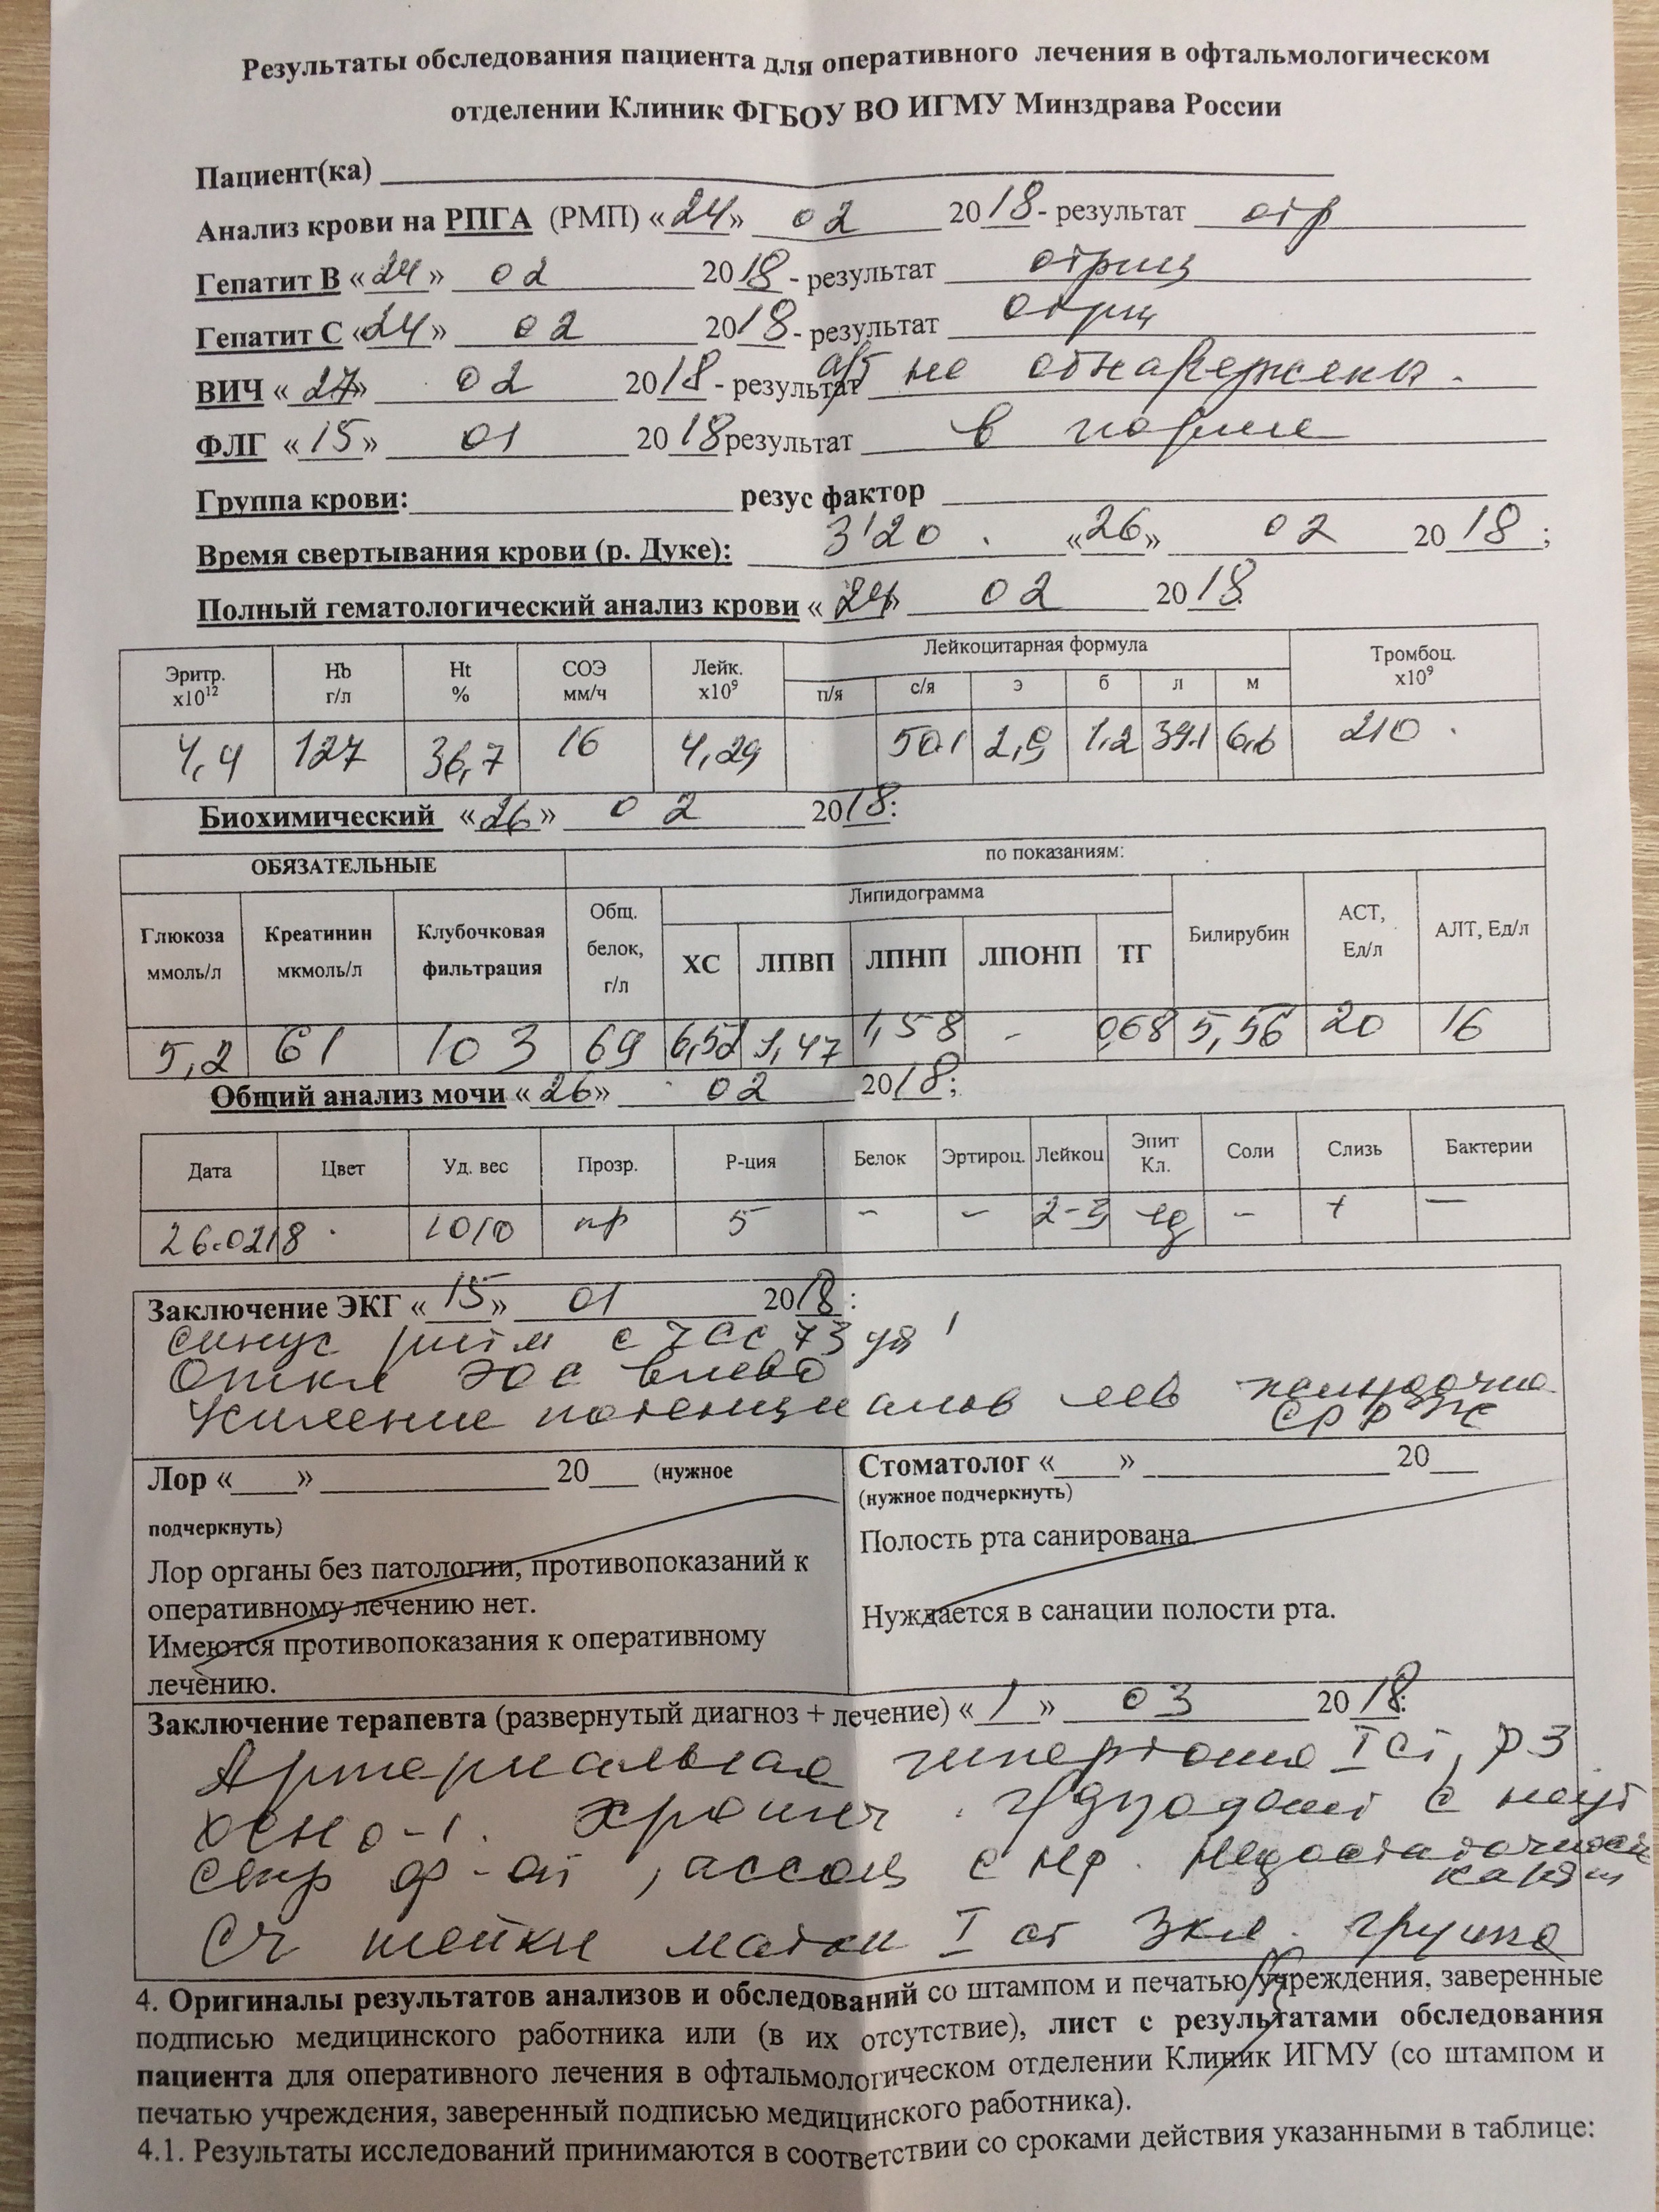 Результаты обследования пациента для оперативного лечения в офтальмологическом
отделении Клиник ФГБОУ ВО ИГМУ Минздрава России
Пациент(ка)
Анализ крови на РПГА (РМП) «24» 02 2018 - результат отр
Гепатит В «24» 02 2018 - результат отриц
Гепатит С «24» 02 2018 - результат отриц
ВИЧ «27» 02 2018 - результат а/т не обнаружены.
ФЛГ «15» 01 2018 результат в норме
Группа крови: резус фактор
Время свертывания крови (р. Дуке): 3'20 «26» 02 2018;
Полный гематологический анализ крови «24» 02 2018
Эритр. х10¹² Hb г/л Ht % СОЭ мм/ч Лейк. х10⁹ Лейкоцитарная формула Тромбоц. х10⁹
п/я с/я э б л м
4,4 127 36,7 16 4,29 50.1 2,9 1,2 39.1 6,6 210
Биохимический «26» 02 2018:
ОБЯЗАТЕЛЬНЫЕ по показаниям:
Глюкоза ммоль/л Креатинин мкмоль/л Клубочковая фильтрация Общ. белок, г/л Липидограмма Билирубин АСТ, Ед/л АЛТ, Ед/л
ХС ЛПВП ЛПНП ЛПОНП ТГ
5,2 61 103 69 6,52 1,47 1,58 - 0,68 5,56 20 16
Общий анализ мочи «26» 02 2018;
Дата Цвет Уд. вес Прозр. Р-ция Белок Эртироц. Лейкоц Эпит Кл. Соли Слизь Бактерии
26.0218 1010 пр 5 - - 2-3 ед - + -
Заключение ЭКГ «15» 01 2018:
синус ритм с ЧСС 73 уд '
Откл ЭОС влево
Усиление потенциалов лев желудочка
СРРЖ
Лор «___» 20___ (нужное
подчеркнуть)
Лор органы без патологии, противопоказаний к
оперативному лечению нет.
Имеются противопоказания к оперативному
лечению.
Стоматолог «___» 20___
(нужное подчеркнуть)
Полость рта санирована.
Нуждается в санации полости рта.
Заключение терапевта (развернутый диагноз + лечение) «1» 03 2018:
Артериальная гипертония I ст, р 3
Хронич. с
секр ф-ей, ассоц с Hp. Недостаточность
шейки матки I ст 3 кл. группа
4. Оригиналы результатов анализов и обследований со штампом и печатью учреждения, заверенные
подписью медицинского работника или (в их отсутствие), лист с результатами обследования
пациента для оперативного лечения в офтальмологическом отделении Клиник ИГМУ (со штампом и
печатью учреждения, заверенный подписью медицинского работника).
4.1. Результаты исследований принимаются в соответствии со сроками действия указанными в таблице: